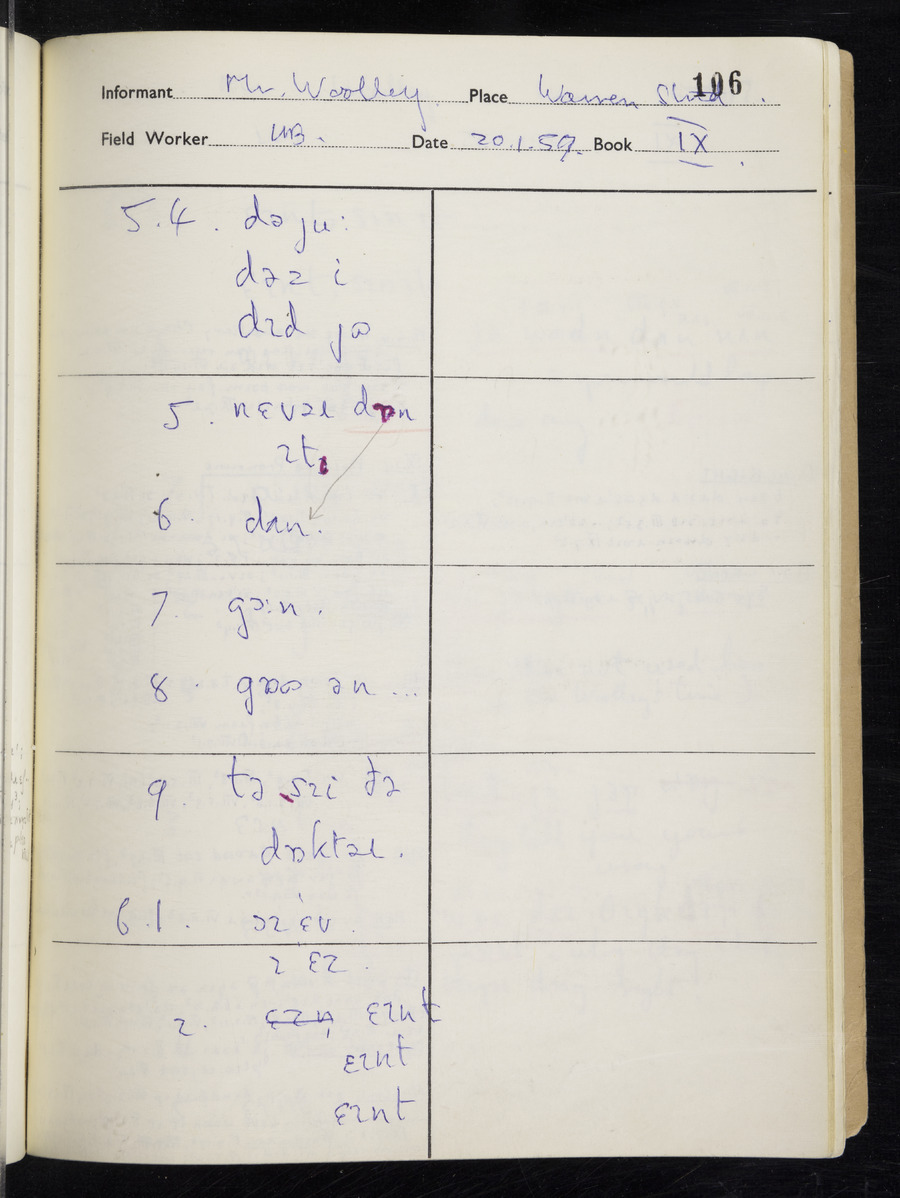 106
Informant Mr. Woolley Place Warren Street.
Field Worker WB. Date 20.1.59. Book IX
5.4. də ju:
dəz i
dɪd jə
5. nɛvəɹ dɒn
ɪt
6. dʌn.
7. gɔ:n.
8. gəʊ ən ...
9 tə sɪi ðə
dɒktəɹ.
6.1. əɪ ɛv.
ɪ ɛz.
2. ɛɪnt
ɛɪnt
ɛɪnt